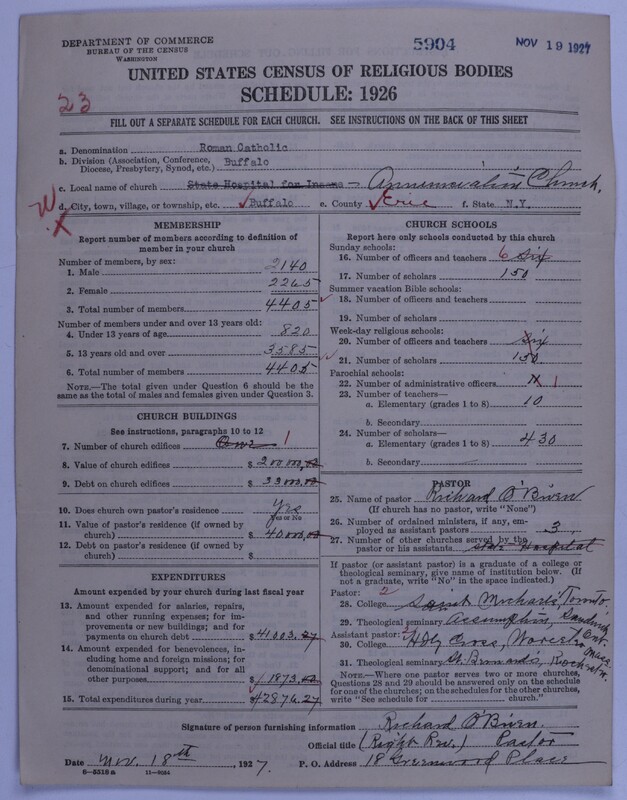 DEPARTMENT OF COMMERCE
BUREAU OF THE CENSUS
WASHINGTON
5904
NOV 19 1927
UNITED STATES CENSUS OF RELIGIOUS BODIES
SCHEDULE: 1926
23
FILL OUT A SEPARATE SCHEDULE FOR EACH CHURCH. SEE INSTRUCTIONS ON THE BACK OF THIS SHEET
a. Denomination Roman Catholic
b. Division (Association, Conference, Diocese, Presbytery, Synod, etc.) Buffalo
c. Local name of church State Hospital for Insane - Annunciation Church,
d. City, town, village, or township, etc. Buffalo e. County Erie f. State N.Y.
W
X
MEMBERSHIP
Report number of members according to definition of
member in your church
Number of members, by sex:
1. Male 2140
2. Female 2265
3. Total number of members 4405
Number of members under and over 13 years old:
4. Under 13 years of age 820
5. 13 years old and over 3585
6. Total number of members 4405
NOTE.—The total given under Question 6 should be
same as the total of males and females given under Question 3.
CHURCH BUILDINGS
See instructions, paragraphs 10 to 12
7. Number of church edifices One 1
8. Value of church edifices $ 200000,00
9. Debt on church edifices $ 33000,00
10. Does church own pastor's residence Yes
Yes or No
11. Value of pastor's residence (if owned by
church) $ 40000,00
12. Debt on pastor's residence (if owned by
church) $
EXPENDITURES
Amount expended by your church during last fiscal year
13. Amount expended for salaries, repairs,
and other running expenses; for im-
provements or new buildings; and for
payments on church debt $ 41003.27
14. Amount expended for benevolences,
including home and foreign missions; for
denominational support; and for all
other purposes $ 1873.00
15. Total expenditures during year $ 42876.27
CHURCH SCHOOLS
Report here only schools conducted by this church
Sunday schools:
16. Number of officers and teachers 6 Six
17. Number of scholars 150
Summer vacation Bible schools:
18. Number of officers and teachers
19. Number of scholars
Week-day religious schools:
20. Number of officers and teachers Six
21. Number of scholars 150
Parochial schools:
22. Number of administrative officers 1
23. Number of teachers—
a. Elementary (grades 1 to 8) 10
b. Secondary
24. Number of scholars—
a. Elementary (grades 1 to 8) 430
b. Secondary
PASTOR
25. Name of pastor Richard O'Brien
(If church has no pastor, write "None")
26. Number of ordained ministers, if any, em-
ployed as assistant pastors 3
27. Number of other churches served by the
pastor or his assistants State Hospital
If pastor (or assistant pastor) is a graduate of a college or
theological seminary, give name of institution below. (If
not a graduate, write "No" in the space indicated.)
Pastor: 2
28. College Saint Michael's Toronto
29. Theological seminary Assumption, Sandwich Ont.
Assistant pastor:
30. College Holy Cross, Worcester Mass.
31. Theological seminary St. Bernard's, Rochester.
NOTE.—Where one pastor serves two or more churches,
Questions 28 and 29 should be answered only on the schedule
for one of the churches; on the schedules for the other churches,
write "See schedule for church."
Signature of person furnishing information Richard O'Brien.
Official title (Right Rev.) Pastor
Date Nov. 18th, 1927. P. O. Address 18 Greenwood Place
6—5518a 11—9034